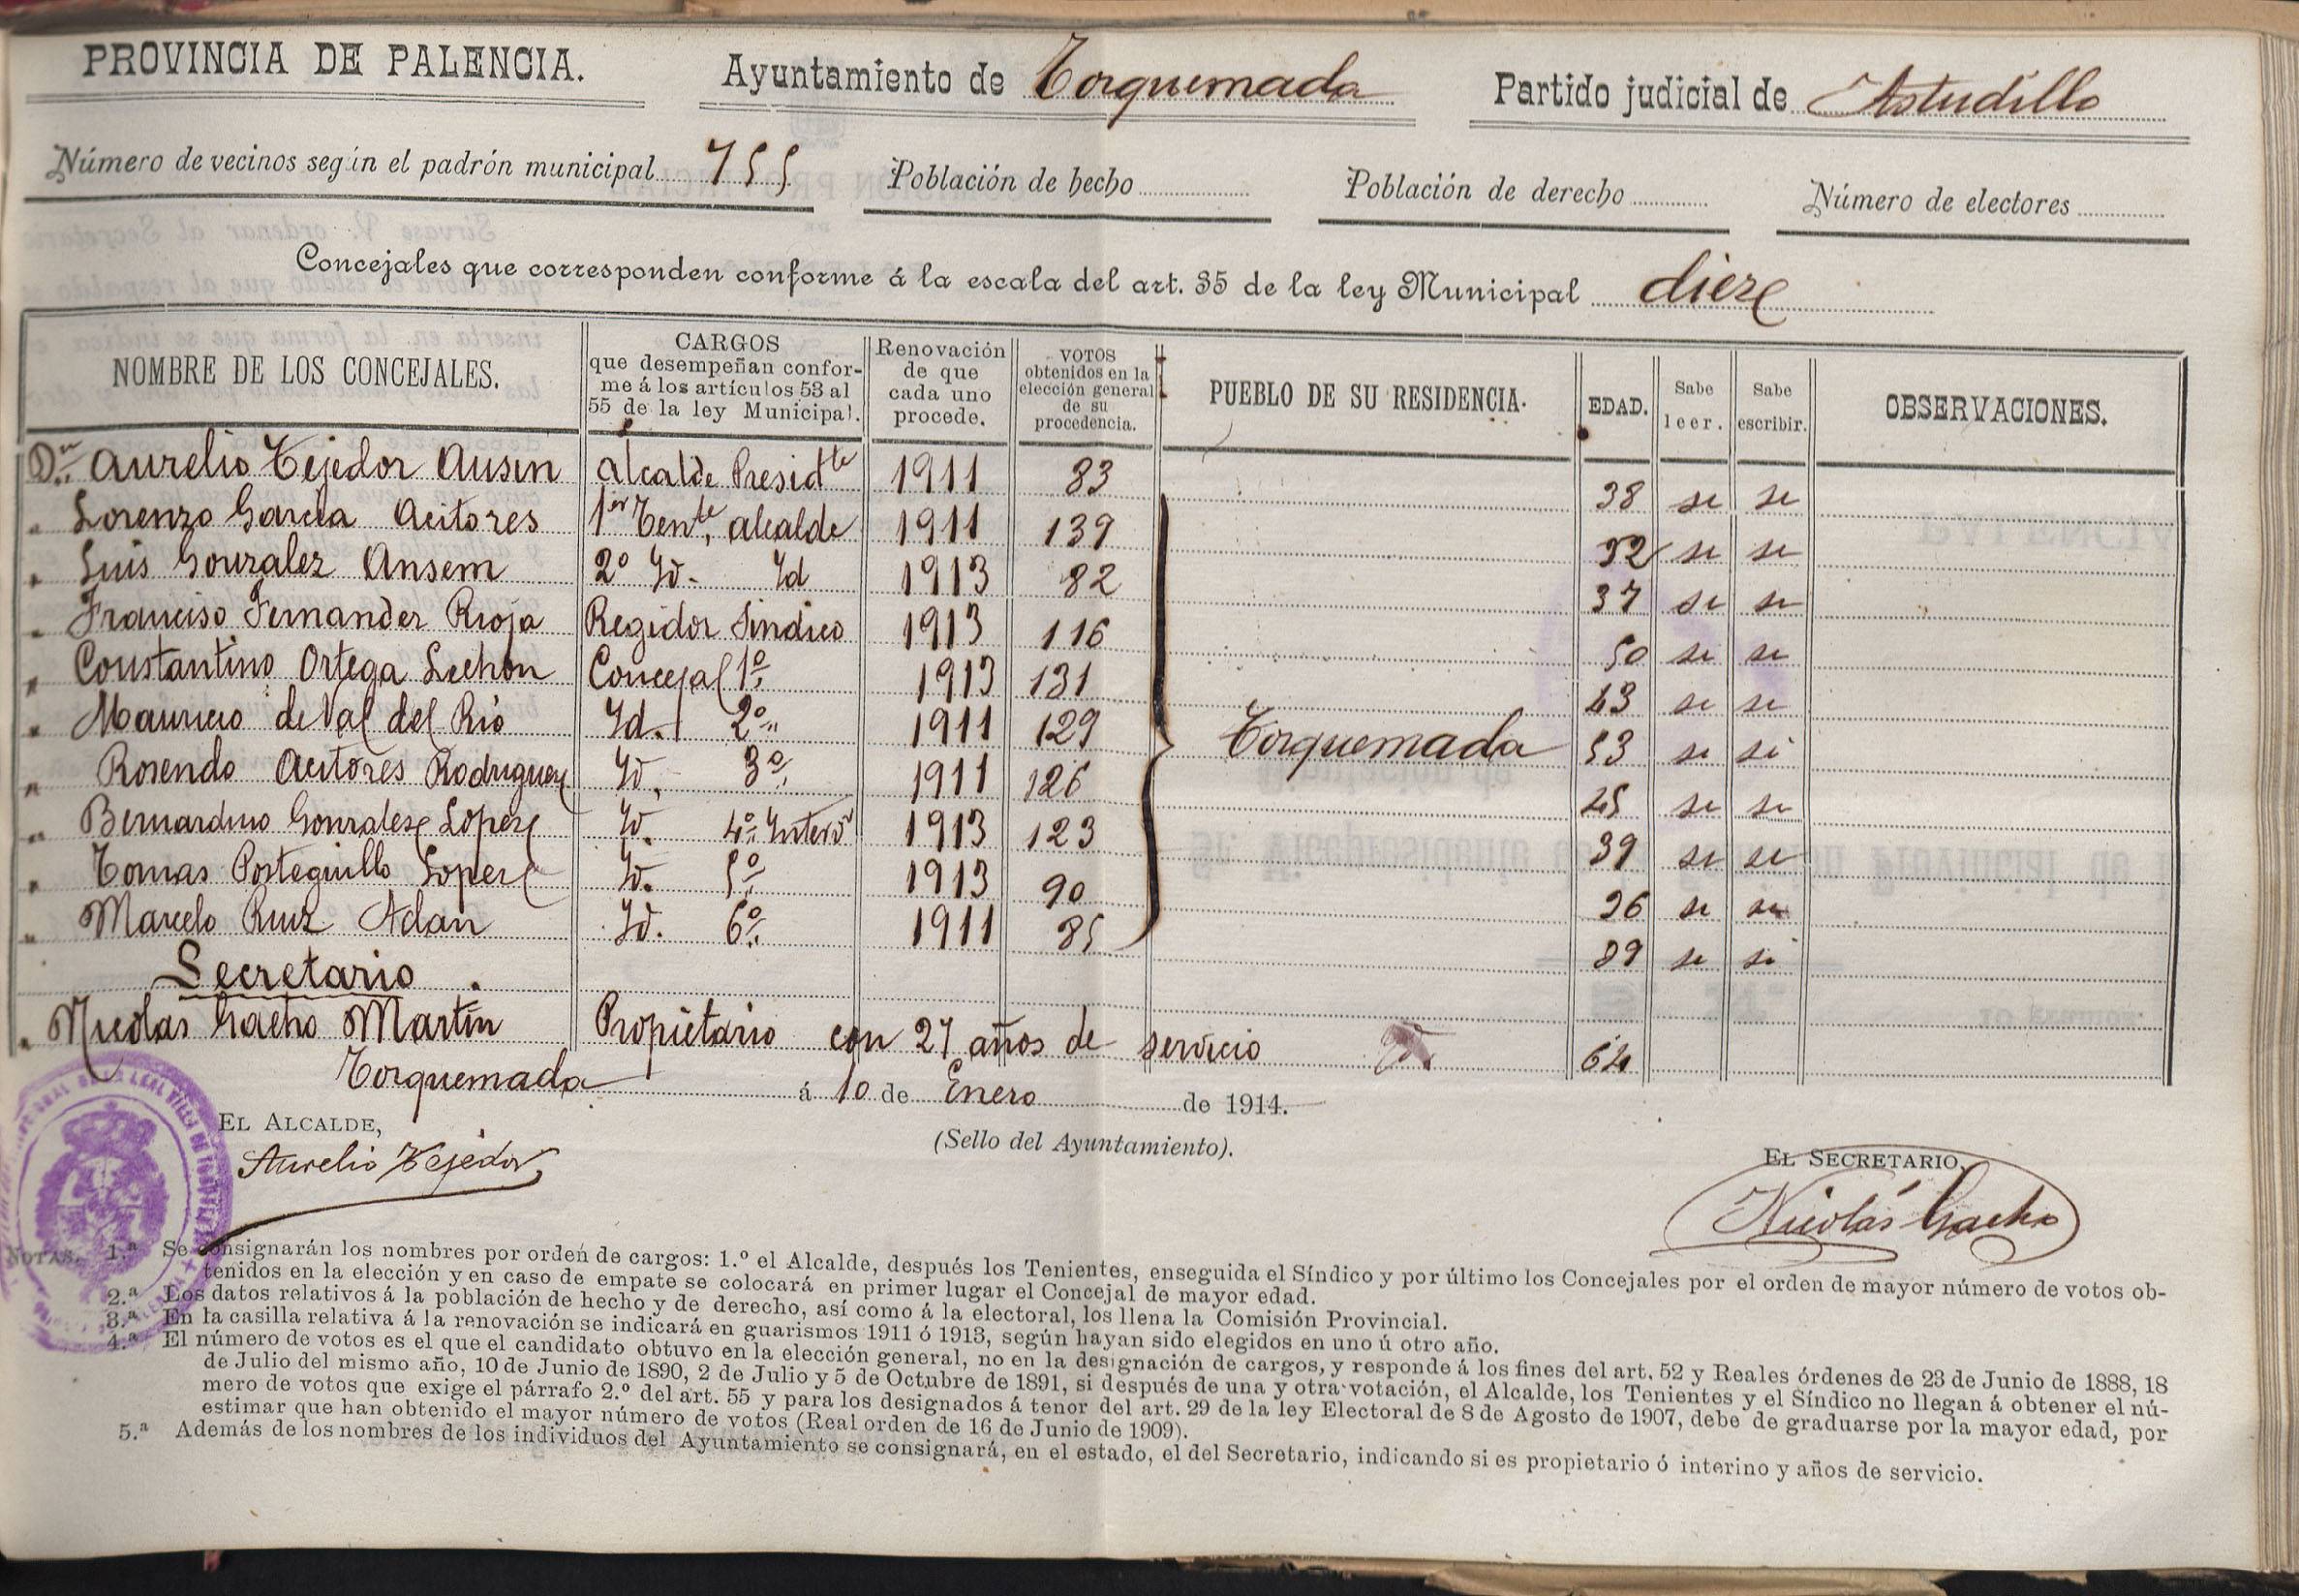 PROVINCIA DE PALENCIA. Ayuntamiento de Torquemada Partido judicial de Astudillo
Número de vecinos según el padrón municipal 755 Población de hecho Población de derecho Número de electores
Concejales que corresponden conforme á la escala del art. 35 de la ley Municipal diez
NOMBRE DE LOS CONCEJALES. CARGOS que desempeñan confor-me á los artículos 53 al 55 de la ley Municipal. Renovación de que cada uno procede. VOTOS obtenidos en la elección general de su procedencia. PUEBLO DE SU RESIDENCIA. EDAD. Sabe leer. Sabe escribir. OBSERVACIONES.
Dn Aurelio Tejedor Ausin Alcalde Presidte 1911 83 38 si si
" Lorenzo Garcia Acitores 1er Tente alcalde 1911 139 32 si si
" Luis Gonzalez Ansem 2º Yd. Yd 1913 82 37 si si
" Francisco Fernandez Rioja Regidor Sindico 1913 116 50 si si
" Constantino Ortega Lechon Concejal 1º 1913 131 43 si si
" Mauricio de Val del Rio Yd. 2º 1911 129 Torquemada 53 si si
" Rosendo Acitores Rodriguez Yd. 3º 1911 126 45 si si
" Bernardino Gonzalez Lopez Yd. 4º Interv 1913 123 39 si si
" Tomas Posteguillo Lopez Yd. 5º 1913 90 si si
" Marcelo Ruiz Adan Yd. 6º 1911 85 si si
Secretario.
" Nicolas Gacho Martin Propietario con 27 años de servicio 64
Torquemada á 10 de Enero de 1914.
EL ALCALDE,
(Sello del Ayuntamiento).
EL SECRETARIO,
Aurelio Tejedor
Nicolás Gacho
NOTAS. 1.ª Se consignarán los nombres por orden de cargos: 1.º el Alcalde, después los Tenientes, enseguida el Síndico y por último los Concejales por el orden de mayor número de votos ob-
tenidos en la elección y en caso de empate se colocará en primer lugar el Concejal de mayor edad.
2.ª Los datos relativos á la población de hecho y de derecho, así como á la electoral, los llena la Comisión Provincial.
3.ª En la casilla relativa á la renovación se indicará en guarismos 1911 ó 1913, según hayan sido elegidos en uno ú otro año.
4.ª El número de votos es el que el candidato obtuvo en la elección general, no en la designación de cargos, y responde á los fines del art. 52 y Reales órdenes de 23 de Junio de 1888, 18
de Julio del mismo año, 10 de Junio de 1890, 2 de Julio y 5 de Octubre de 1891, si después de una y otra votación, el Alcalde, los Tenientes y el Síndico no llegan á obtener el nú-
mero de votos que exige el párrafo 2.º del art. 55 y para los designados á tenor del art. 29 de la ley Electoral de 8 de Agosto de 1907, debe de graduarse por la mayor edad, por
estimar que han obtenido el mayor número de votos (Real orden de 16 de Junio de 1909).
5.ª Además de los nombres de los individuos del Ayuntamiento se consignará, en el estado, el del Secretario, indicando si es propietario ó interino y años de servicio.